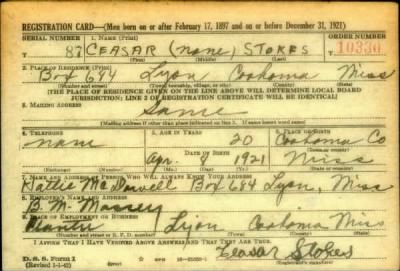 REGISTRATION CARD—(Men born on or after February 17, 1897 and on or before December 31, 1921)
SERIAL NUMBER 1. NAME (Print) ORDER NUMBER
87 CEASAR (none) STOKES 10330
(First) (Middle) (Last)
2. PLACE OF RESIDENCE (Print)
Box 684 Lyon Coahoma Miss
(Number and street) (Town, township, village, or city) (County) (State)
[THE PLACE OF RESIDENCE GIVEN ON THE LINE ABOVE WILL DETERMINE LOCAL BOARD
JURISDICTION; LINE 2 OF REGISTRATION CERTIFICATE WILL BE IDENTICAL]
3. MAILING ADDRESS
Same
[Mailing address if other than place indicated on line 2. If same insert word same]
4. TELEPHONE 5. AGE IN YEARS 6. PLACE OF BIRTH
none 20 Coahoma Co
DATE OF BIRTH
Apr. 8 1921 Miss
7. NAME AND ADDRESS OF PERSON WHO WILL ALWAYS KNOW YOUR ADDRESS
Hattie McDowell Box 684 Lyon, Miss
8. EMPLOYER'S NAME AND ADDRESS
B. M. Massey
9. PLACE OF EMPLOYMENT OR BUSINESS
Planter Lyon Coahoma Miss
(Number and street or R. F. D. number) (Town) (County) (State)
I AFFIRM THAT I HAVE VERIFIED ABOVE ANSWERS AND THAT THEY ARE TRUE.
D. S. S. Form 1
(Revised 1-1-42) (over)
Ceasar Stokes